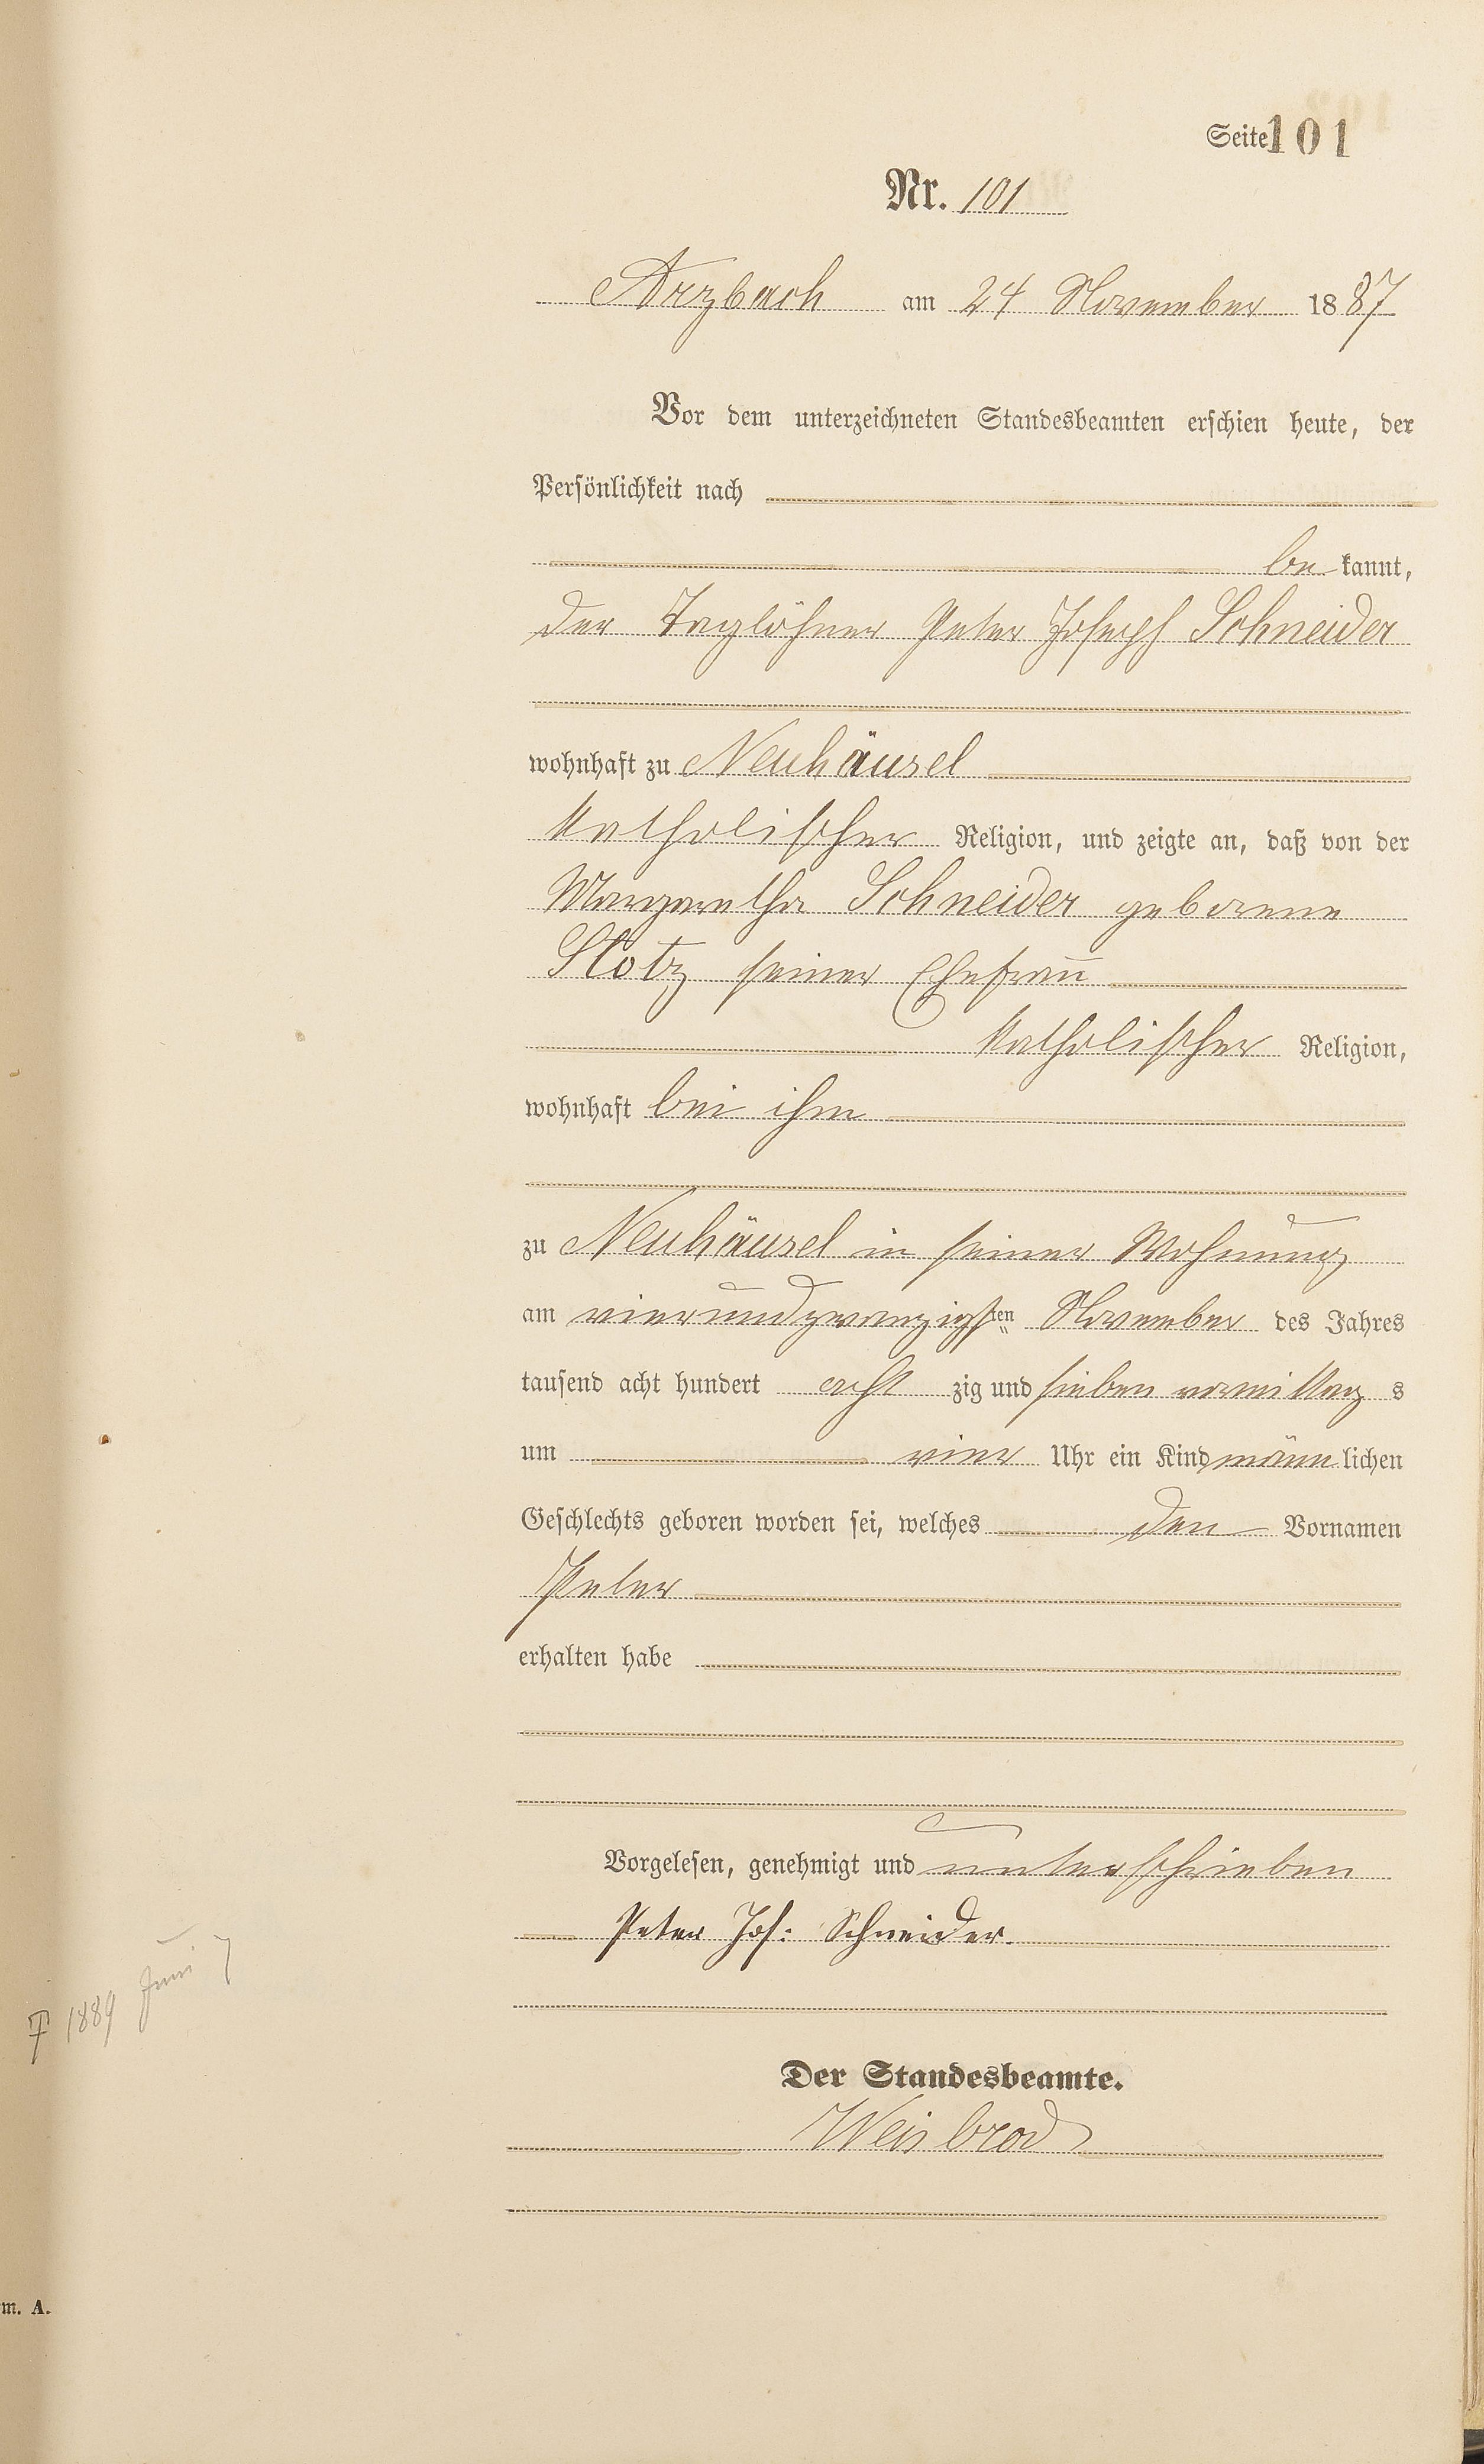 Seite 101
Nr. 101
Arzbach am 24 November 1887
Vor dem unterzeichneten Standesbeamten erschien heute, der
Persönlichkeit nach
bekannt,
der Taglöhner Peter Joseph Schneider
wohnhaft zu Neuhäusel
katholischer Religion, und zeigte an, daß von der
Margaretha Schneider geborene
Stotz seiner Ehefrau
katholischer Religion,
wohnhaft bei ihm
zu Neuhäusel in seiner Wohnung
am vierundzwanzigsten November des Jahres
tausend acht hundert acht zig und sieben vormittag s
um vier Uhr ein Kind männlichen
Geschlechts geboren worden sei, welches den Vornamen
Peter
erhalten habe
Vorgelesen, genehmigt und unterschrieben
Peter Jos: Schneider.
† 1889 Juni 7
Der Standesbeamte.
Weisbrod
m. A.